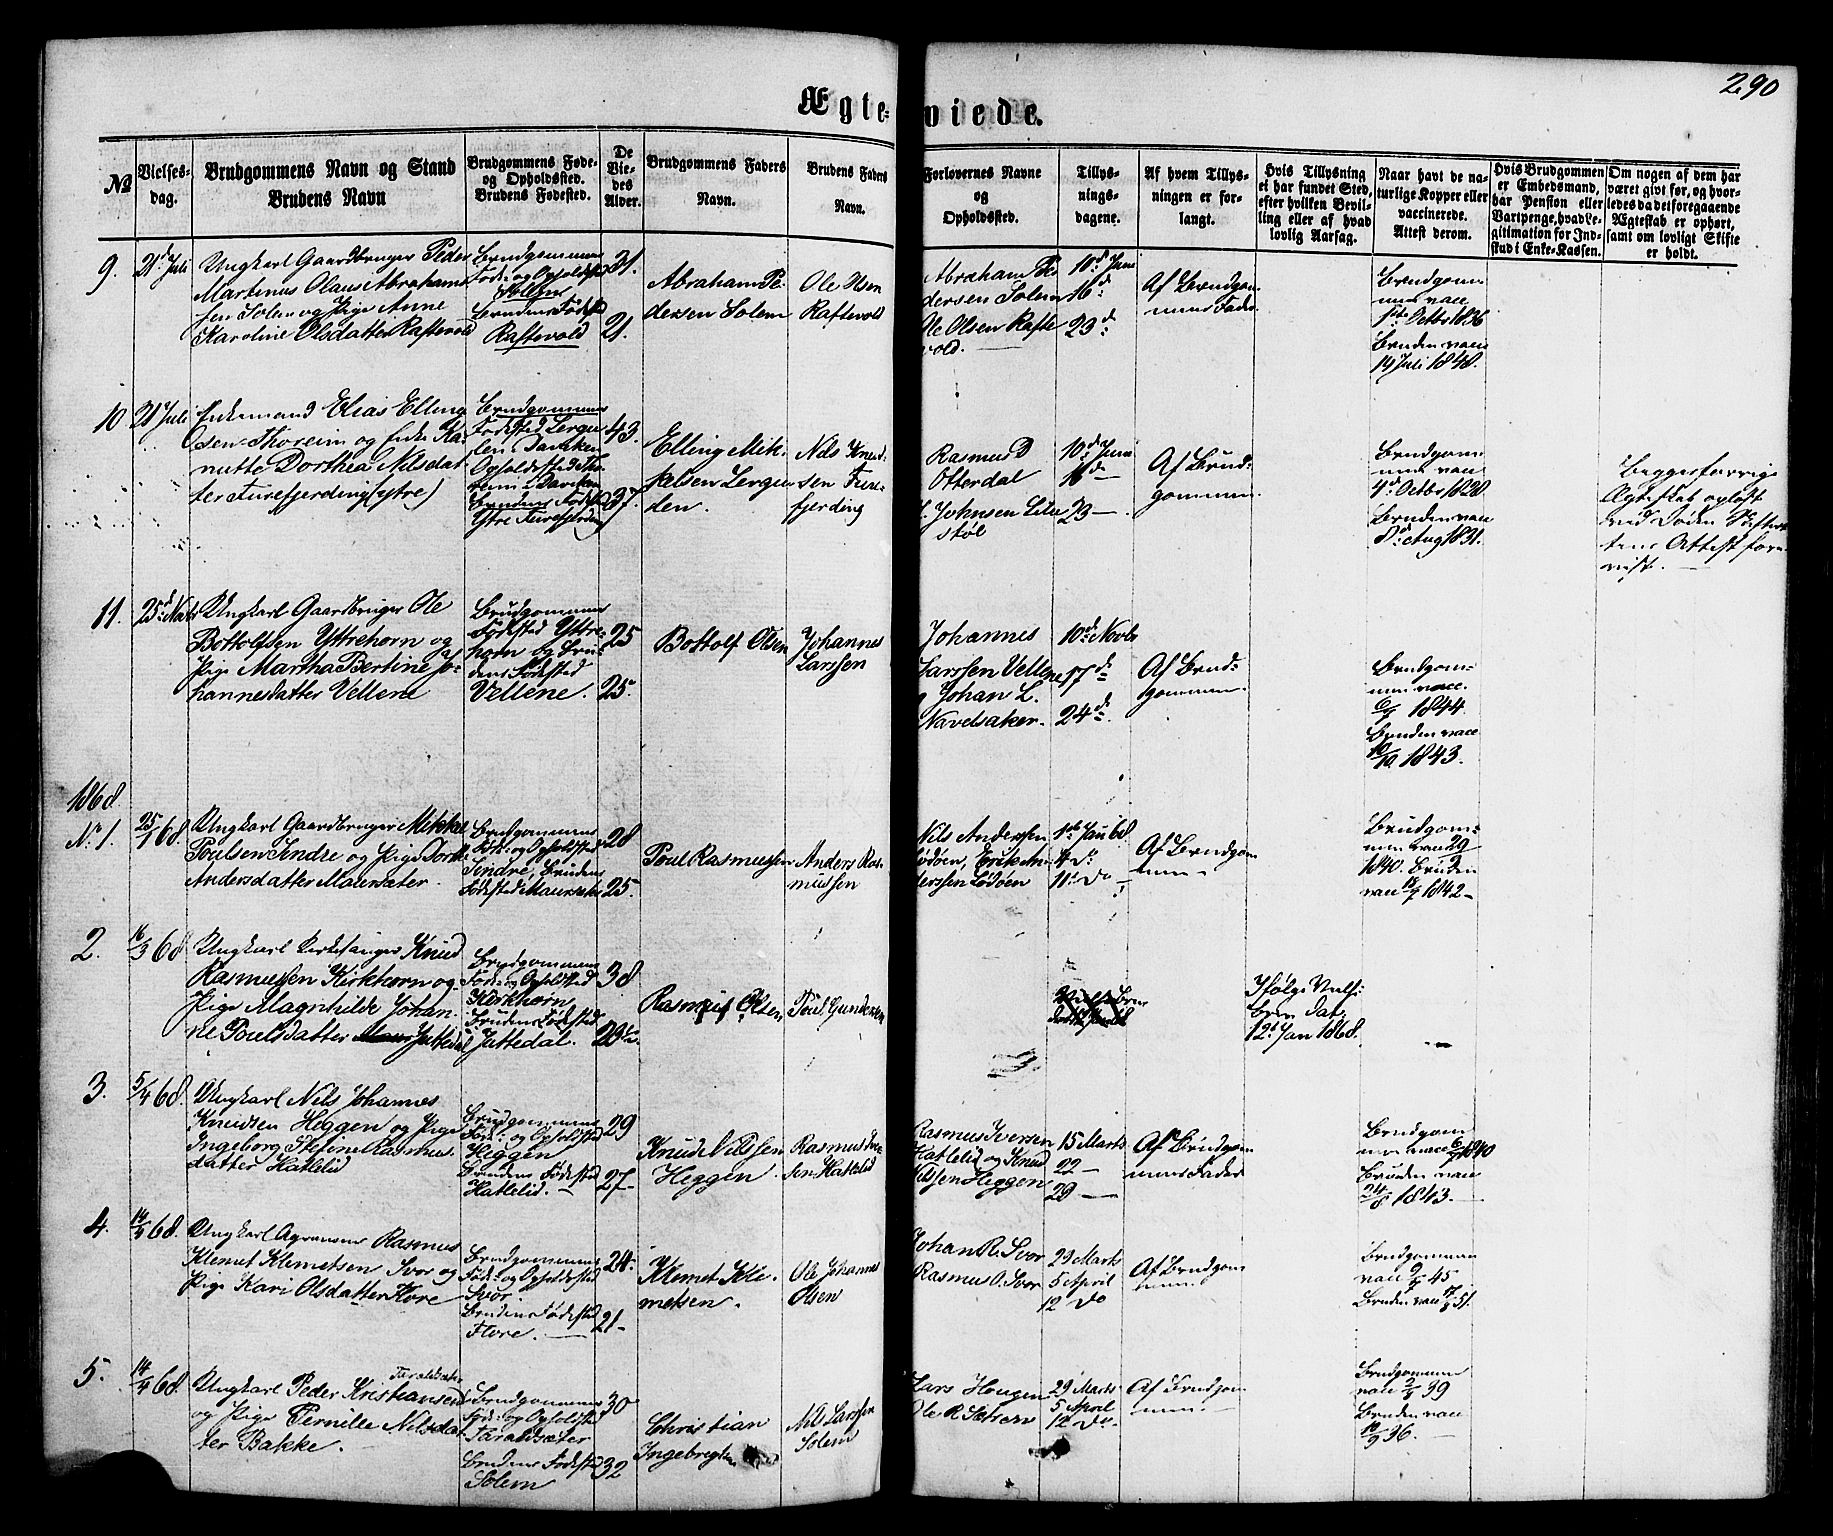 290
Ægteviede.
№
Vielses-
dag.
Brudgommens Navn og Stand
Brudens Navn
Brudgommens Føde-
og Opholdssted.
Brudens Fødested.
De
Vie-
des
Alder.
Brudgommens Faders
Navn.
Brudens Faders
Navn.
Forlovernes Navne
og
Opholdssted.
Tillys-
nings-
dagene.
Af hvem Tillys-
ningen er for-
langt.
Hvis Tillysning
ei har fundet Sted,
efter hvilken Bevil-
ling eller af hvad
lovlig Aarsag.
Naar havt de na-
turlige Kopper eller
vaccinerede.
Attest derom.
Hvis Brudgommen
er Embedsmand,
har Pension eller
Vartpenge, hvad Le-
gitimation for Ind-
skud i Enke-Kassen.
Om nogen af dem har
været gift før, og hvor-
ledes da det foregaaende
Ægteskab er ophørt,
samt om lovligt Skifte
er holdt.
9.
21d Juli
Ungkarl Gaardbruger Peder
Martinus Olaus Abraham-
sen Solem og Pige Anne
Karoline Olsdatter Raftevold
Brudgommens
Føde- og Opholdssted
Solem
Brudens Fødested
Raftevold
31.
21.
Abraham Pe-
dersen Solem
Ole Olsen
Raftevold
Abraham Pe-
dersen Solem
Ole Olsen Rafte
vold.
10d Juni
16d
23d
Af Brudgom-
mens Fader
Brudgom-
men vacc
1ste Octbr 1836
Bruden vacc
14 Juli 1848.
10
21 Juli
Enkemand Elias Elling-
sen Thoreim og Enke Ka-
nutte Dorthea Nilsdat-
ter Furefjerding (ytre)
Brudgommens
Fødested Lergu-
len i Daviken
Opholdssted Tho-
reim i Daviken
Brudens Fødested
Ytre Furefjerding
43.
37.
Elling Mik-
kelsen Lergu-
len.
Nils Knud-
sen Fure-
fjerding
Rasmus D
Otterdal
Johnsen Lille
støl
10d Juni
16 —
23 —
Af Brud-
gommen
Brudgom-
men vacc
4d Octbr 1828
Bruden vacc
8d Aug 1831.
Begges forrige
Ægteskab opløst
ved Døden. Skifteret-
tens Attest fore-
vist.
11.
25d Nov
Ungkarl Gaardbruger Ole
Bottolfsen Yttrehorn og
Pige Martha Bertine Jo-
hannesdatter Vellene
Brudgommens
Fødested Yttre-
horn og Bru-
dens Fødested
Vellene.
25
25.
Bottolf Olsen
Johannes
Larssen
Johannes
Larssen Vellene
og Johan L.
Navelsaker.
10d Novbr
17d
24d
Af Brud-
gommen.
Brudgom-
men vacc.
6/9 1844.
Bruden vacc
10/10 1843.
1868.
No 1.
25/1 68.
Ungkarl Gaardbruger Mikkel
Poulsen Sindre og Pige Dorthe
Andersdatter Maursæter.
Brudgommens
Føde- og Opholdssted
Sindre, Brudens
Fødested Maursæter
28
25.
Poul Rasmussen
Anders Ras-
mussen
Nils Anderssen
Lødøen, Erik An-
derssen Lødøen
1ste Jan 68.
4 do
11 do
Af Brudgom
men
Brudgom-
men vacc 29
1840. Bruden
vacc 1842 —
2.
16/3 68
Ungkarl Kirkesanger Knud
Rasmussen Kirkhorn og
Pige Magnhilde Johan-
ne Poulsdatter Juttedal
Brudgommens
Føde- og Opholdssted
Kirkhorn
Brudens Fødested
Juttedal.
38
23
Rasmus Olsen
Poul Gundersen
Ifølge Vielse
brev dat:
12d Jan 1868.
3.
5/4 68.
Ungkarl Nils Johannes
Knudsen Heggen og Pige
Ingeborg Stefine Rasmus-
datter Hatlelid
Brudgommens
Føde- og Opholdssted
Heggen
Brudens Fødested
Hatlelid. —
29
27 —
Knud Nilssen
Heggen
Rasmus Iver-
sen Hatlelid
Rasmus Iversen
Hatlelid og Knud
Nilssen Heggen
15 Marts
22 —
29 —
Af Brudgom
mens Fader
Brudgom
men vacc 1840
Bruden vacc
24/8 1843. —
4.
14/4 68.
Ungkarl Agronom Rasmus
Klemet Klemetsen Svor og
Pige Kari Olsdatter Flore
Brudgommens
Føde- og Opholdssted
Svor
Brudens Fødested
Flore. —
24 —
21 —
Klemet Kle-
metsen.
Ole Johannes
Olsen
Johan R. Svor
Rasmus O. Svor
29 Marts
5 April
12 do
Af Brudgom
men
Brudgommen
vacc 45
Bruden vacc 51.
5.
14/4 68.
Taraldsæter
Ungkarl Peder Kristiansen
og Pige Pernille Nilsdat-
ter Bakke.
Brudgommens
Føde- og Opholdssted
Taraldsæter
Brudens Fødested
Solem
30
32
Christian
Ingebregtsen
Nils Larssen
Solem
Lars Hougen
Ole R. Sætren
29 Marts
5 April
12 do
Af Brudgom
men
Brudgommen
vacc 39
Bruden vacc
18/9 36. —